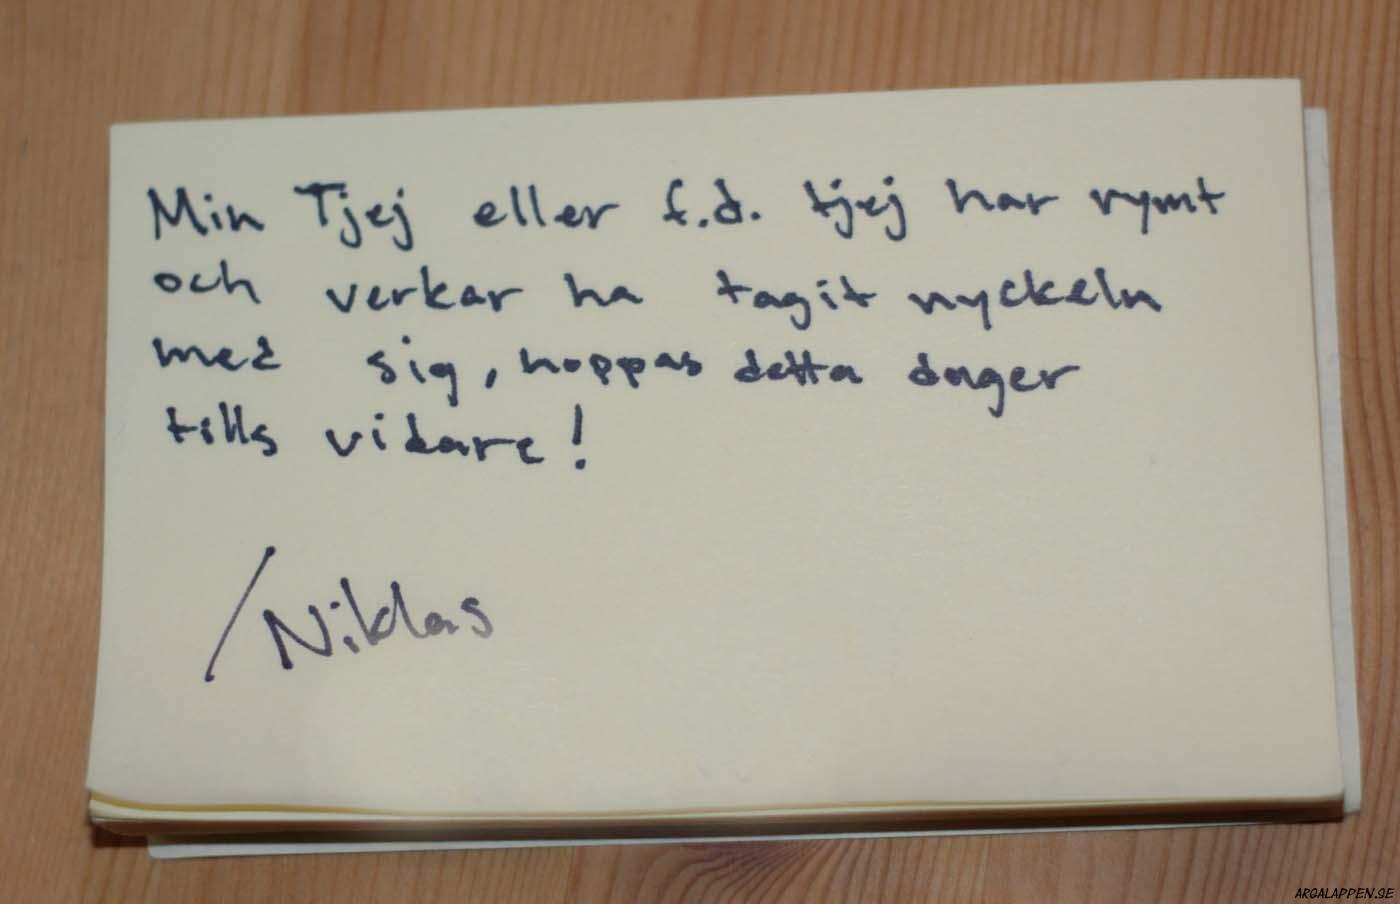 Min Tjej eller f.d. tjej har rymt
och verkar ha tagit nyckeln
med sig, hoppas detta duger
tills vidare!
/Niklas
ARGALAPPEN.SE